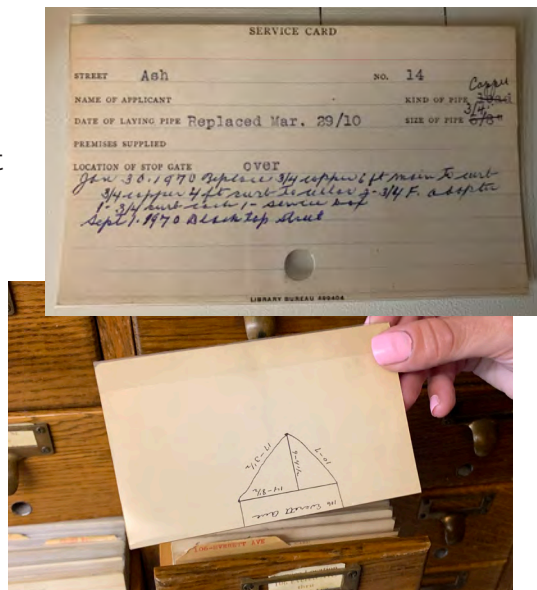 SERVICE CARD
STREET Ash NO. 14
Copper
NAME OF APPLICANT KIND OF PIPE Lead
3/4
DATE OF LAYING PIPE Replaced Mar. 29/10 SIZE OF PIPE 5/8"
PREMISES SUPPLIED
LOCATION OF STOP GATE over
Jan 30. 1970 Replace 3/4 copper 6 ft main to curb
3/4 copper 4 ft curb to 2- 3/4 F. adapter
1- 3/4 curb cock 1- service box
Sept 1. 1970 Blacktop
LIBRARY BUREAU
17-5½
10-7
14-8½
Everett Ave